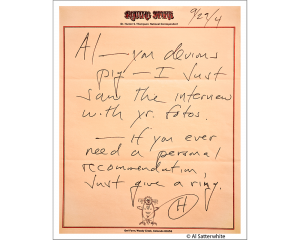 ROLLING STONE
Dr. Hunter S. Thompson, National Correspondent
9/29/4
Al — you devious
pig — I just
saw the interview
with yr. fotos.
— If you ever
need a personal
recommendation,
Just give a ring.
H
© Al Satterwhite